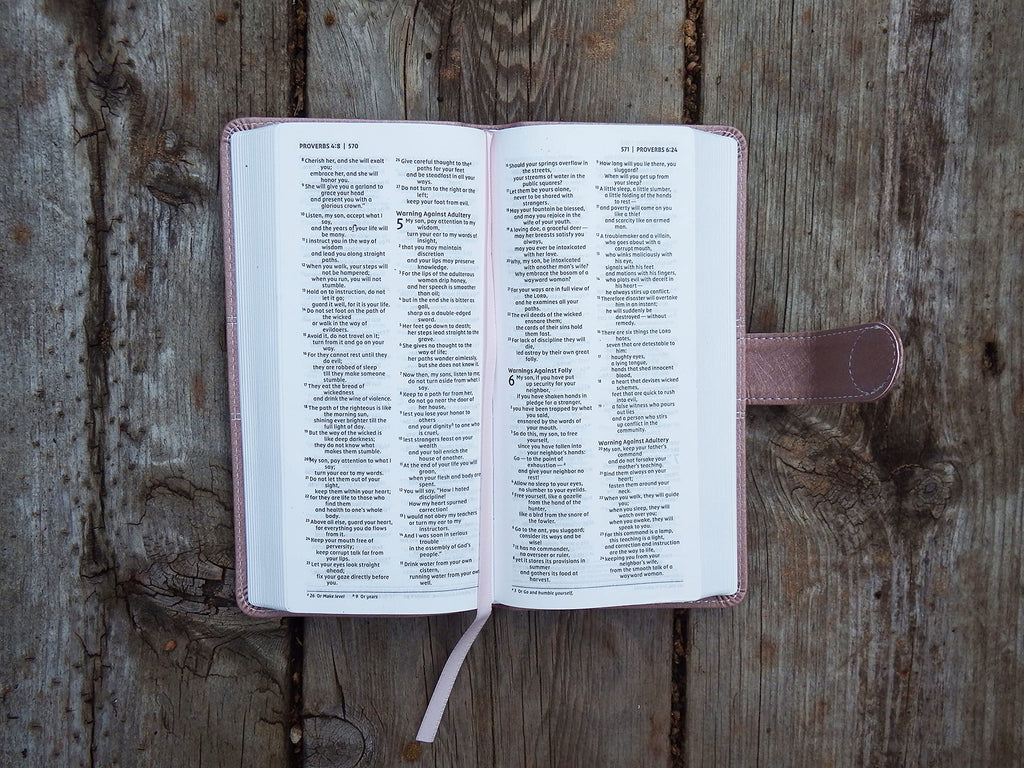 PROVERBS 4:8 | 570
8 Cherish her, and she will exalt
you;
embrace her, and she will
honor you.
9 She will give you a garland to
grace your head
and present you with a
glorious crown."
10 Listen, my son, accept what I
say,
and the years of your life will
be many.
11 I instruct you in the way of
wisdom
and lead you along straight
paths.
12 When you walk, your steps will
not be hampered;
when you run, you will not
stumble.
13 Hold on to instruction, do not
let it go;
guard it well, for it is your life.
14 Do not set foot on the path of
the wicked
or walk in the way of
evildoers.
15 Avoid it, do not travel on it;
turn from it and go on your
way.
16 For they cannot rest until they
do evil;
they are robbed of sleep
till they make someone
stumble.
17 They eat the bread of
wickedness
and drink the wine of violence.
18 The path of the righteous is like
the morning sun,
shining ever brighter till the
full light of day.
19 But the way of the wicked is
like deep darkness;
they do not know
what makes them stumble.
20 My son, pay attention to what I
say;
turn your ear to my words.
21 Do not let them out of your
sight,
keep them within your heart;
22 for they are life to those who
find them
and health to one's whole
body.
23 Above all else, guard your heart,
for everything you do flows
from it.
24 Keep your mouth free of
perversity;
keep corrupt talk far from
your lips.
25 Let your eyes look straight
ahead;
fix your gaze directly before
you.
26 Give careful thought to the a
paths for your feet
and be steadfast in all your
ways.
27 Do not turn to the right or the
left;
keep your foot from evil.
Warning Against Adultery
5 My son, pay attention to my
wisdom,
turn your ear to my words of
insight,
2 that you may maintain
discretion
and your lips may preserve
knowledge.
3 For the lips of the adulterous
woman drip honey,
and her speech is smoother
than oil;
4 but in the end she is bitter as
gall,
sharp as a double-edged
sword.
5 Her feet go down to death;
her steps lead straight to the
grave.
6 She gives no thought to the
way of life;
her paths wander aimlessly,
but she does not know it.
7 Now then, my sons, listen to me;
do not turn aside from what I
say.
8 Keep to a path far from her,
do not go near the door of
her house,
9 lest you lose your honor to
others
and your dignity b to one who
is cruel,
10 lest strangers feast on your
wealth
and your toil enrich the
house of another.
11 At the end of your life you will
groan,
when your flesh and body are
spent.
12 You will say, "How I hated
discipline!
How my heart spurned
correction!
13 I would not obey my teachers
or turn my ear to my
instructors.
14 And I was soon in serious
trouble
in the assembly of God's
people."
15 Drink water from your own
cistern,
running water from your own
well.
a 26 Or Make level b 9 Or years
571 | PROVERBS 6:24
16 Should your springs overflow in
the streets,
your streams of water in the
public squares?
17 Let them be yours alone,
never to be shared with
strangers.
18 May your fountain be blessed,
and may you rejoice in the
wife of your youth.
19 A loving doe, a graceful deer —
may her breasts satisfy you
always,
may you ever be intoxicated
with her love.
20 Why, my son, be intoxicated
with another man's wife?
Why embrace the bosom of a
wayward woman?
21 For your ways are in full view of
the LORD,
and he examines all your
paths.
22 The evil deeds of the wicked
ensnare them;
the cords of their sins hold
them fast.
23 For lack of discipline they will
die,
led astray by their own great
folly.
Warnings Against Folly
6 My son, if you have put
up security for your
neighbor,
if you have shaken hands in
pledge for a stranger,
2 you have been trapped by what
you said,
ensnared by the words of
your mouth.
3 So do this, my son, to free
yourself,
since you have fallen into
your neighbor's hands:
Go — to the point of
exhaustion — a
and give your neighbor no
rest!
4 Allow no sleep to your eyes,
no slumber to your eyelids.
5 Free yourself, like a gazelle
from the hand of the
hunter,
like a bird from the snare of
the fowler.
6 Go to the ant, you sluggard;
consider its ways and be
wise!
7 It has no commander,
no overseer or ruler,
8 yet it stores its provisions in
summer
and gathers its food at
harvest.
9 How long will you lie there, you
sluggard?
When will you get up from
your sleep?
10 A little sleep, a little slumber,
a little folding of the hands
to rest —
11 and poverty will come on you
like a thief
and scarcity like an armed
man.
12 A troublemaker and a villain,
who goes about with a
corrupt mouth,
13 who winks maliciously with
his eye,
signals with his feet
and motions with his fingers,
14 who plots evil with deceit in
his heart —
he always stirs up conflict.
15 Therefore disaster will overtake
him in an instant;
he will suddenly be
destroyed — without
remedy.
16 There are six things the LORD
hates,
seven that are detestable to
him:
17 haughty eyes,
a lying tongue,
hands that shed innocent
blood,
18 a heart that devises wicked
schemes,
feet that are quick to rush
into evil,
19 a false witness who pours
out lies
and a person who stirs
up conflict in the
community.
Warning Against Adultery
20 My son, keep your father's
command
and do not forsake your
mother's teaching.
21 Bind them always on your
heart;
fasten them around your
neck.
22 When you walk, they will guide
you;
when you sleep, they will
watch over you;
when you awake, they will
speak to you.
23 For this command is a lamp,
this teaching is a light,
and correction and instruction
are the way to life,
24 keeping you from your
neighbor's wife,
from the smooth talk of a
wayward woman.
a 3 Or Go and humble yourself,